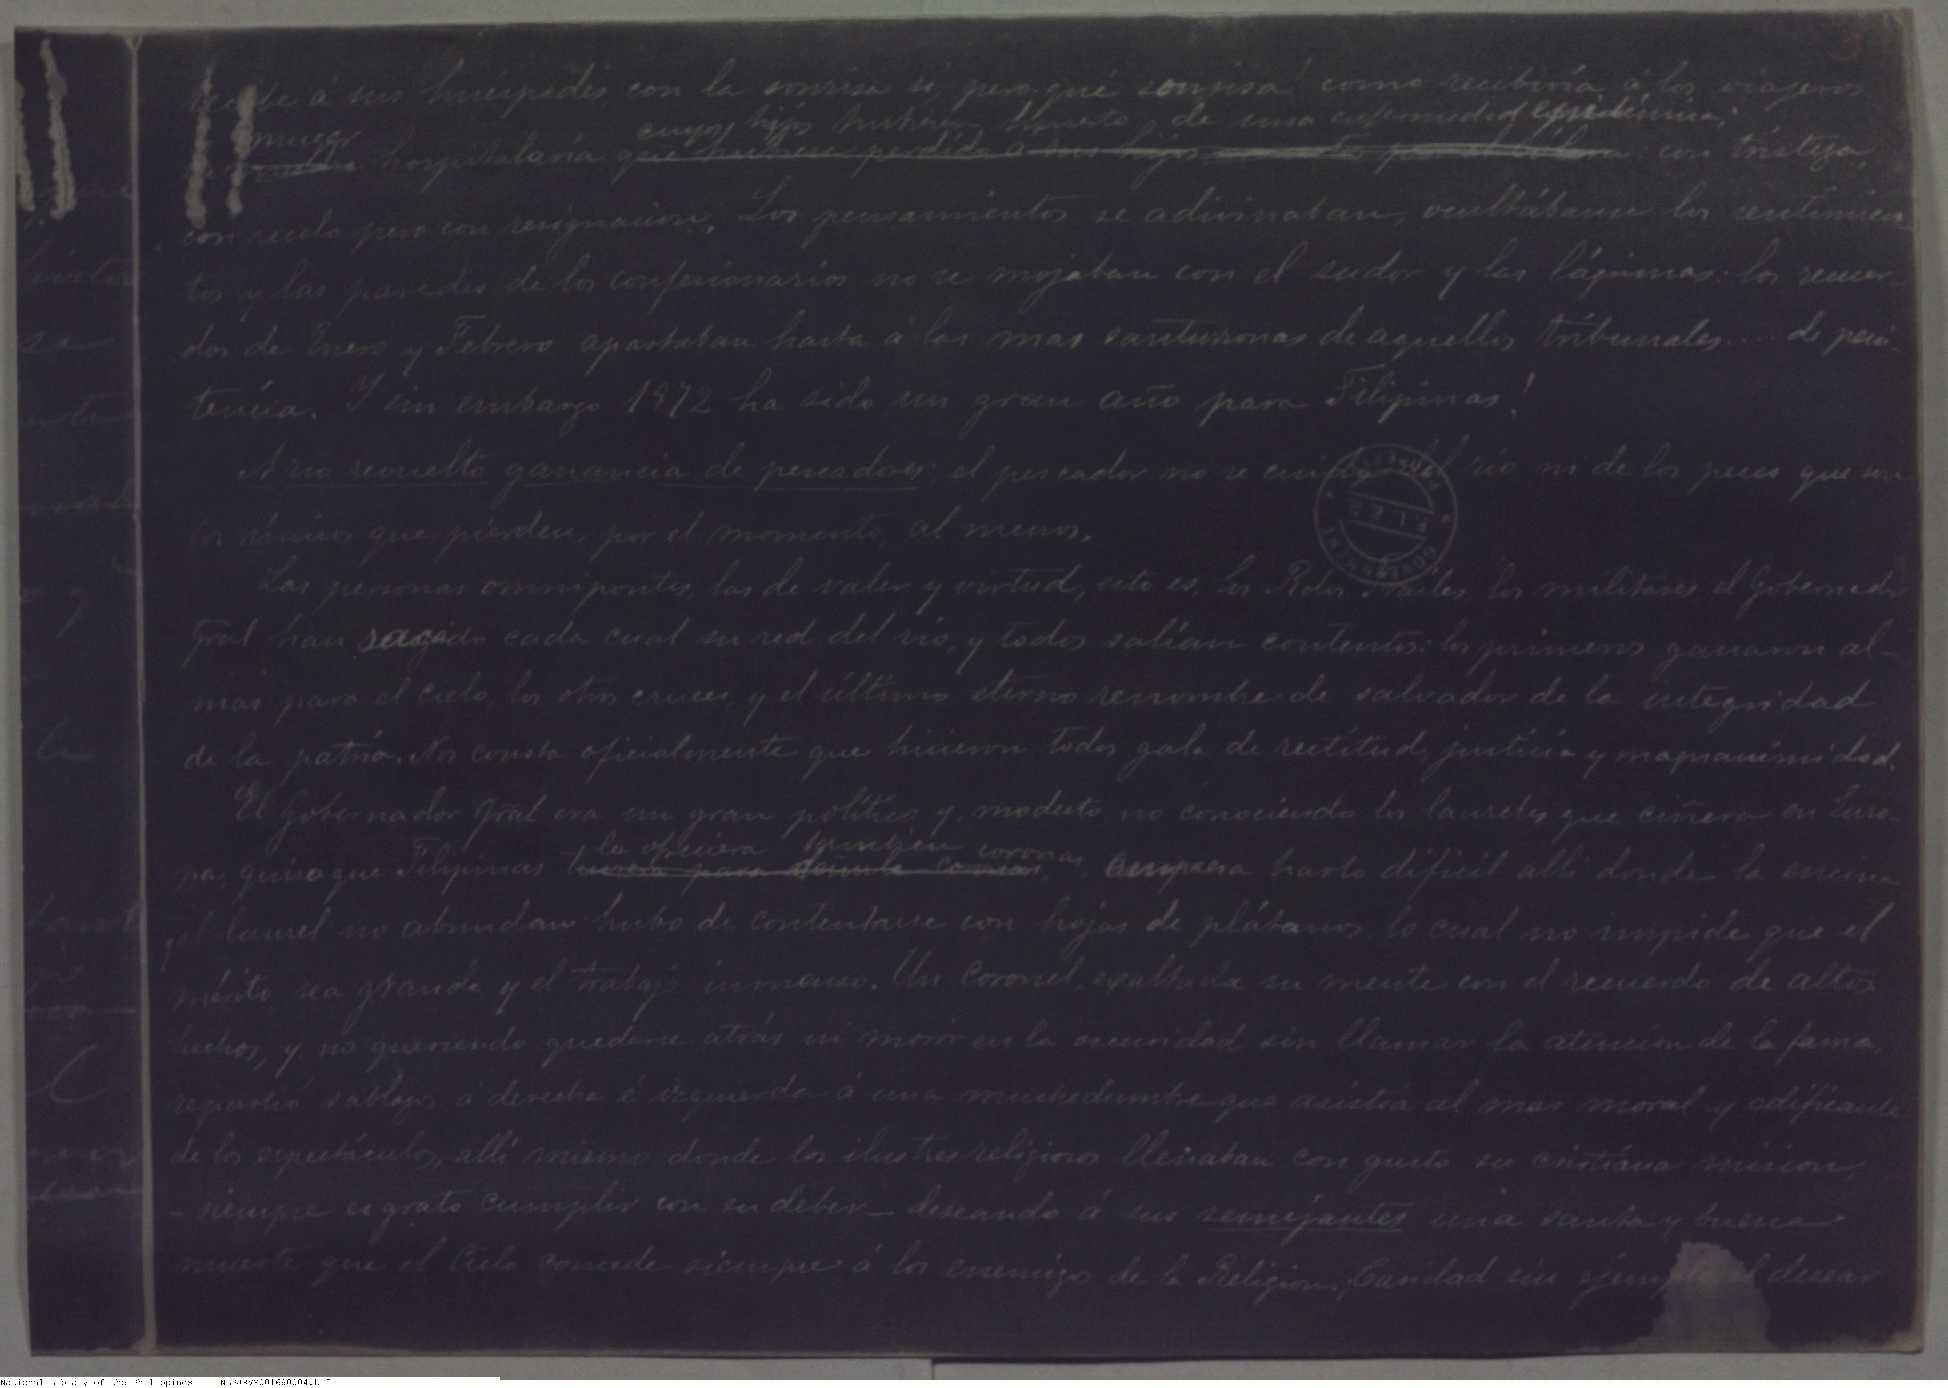 á sus huéspedes con la sonrisa sí, pero qué sonrisa! como recibiría á los viajeros
muger cuyos hijos hubieran muerto de una enfermedad epidémica;
hospitalaria que hubiera perdido a sus hijos con tristeza,
con duelo pero con resignacion. Los pensamientos se adivinaban, ocultábanse los sentimien
tos y las paredes de los confesionarios no se mojaban con el sudor y las lágrimas: los recuer-
dos de Enero y Febrero apartaban hasta á las mas santurronas de aquellos tribunales.... de peni-
tencia. Y sin embargo 1872 ha sido un gran año para Filipinas!
A rio revuelto ganancia de pescadores: el pescador no se cuida rio ni de los peces que son
los únicos que pierden, por el momento, al menos.
Las personas omnipontes, las de valer y virtud, esto es, los Rdos. Frailes, los militares, el Gobernador
Gral han sacado cada cual su red del rio, y todos salían contentos: los primeros ganaron al-
mas para el cielo, los otros cruces, y el último eterno renombre de salvador de la integridad
de la patria. Nos consta oficialmente que hicieron todos gala de rectitud, justicia y magnanimidad.
El Gobernador Gral era un gran político y, modesto, no conociendo los laureles que ciñera en Euro-
le ofreciera tambien coronas
pa, quiso que Filipinas tuviera para empresa harto dificil allí donde la encina
y el laurel no abundan hubo de contentarse con hojas de plátanos, lo cual no impide que el
mérito sea grande y el trabajo inmenso. Un Coronel, exaltada su mente con el recuerdo de altos
hechos, y no queriendo quedarse atrás ni morir en la oscuridad sin llamar la atencion de la fama,
repartió sablazos á derecha é izquierda á una muchedumbre que asistía al mas moral y edificante
de los espectáculos, allí mismo donde los ilustres religiosos llenaban con gusto su cristiana mision,
- siempre es grato cumplir con su deber - deseando á sus semejantes una santa y buena
muerte que el Cielo concede siempre á los enemigos de la Religion. Caridad sin ejemplo el desear